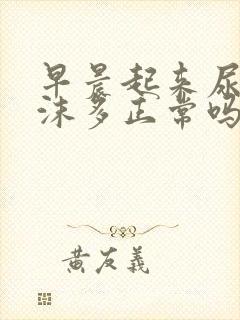 早晨起来尿
沫多正常吗
黄友义